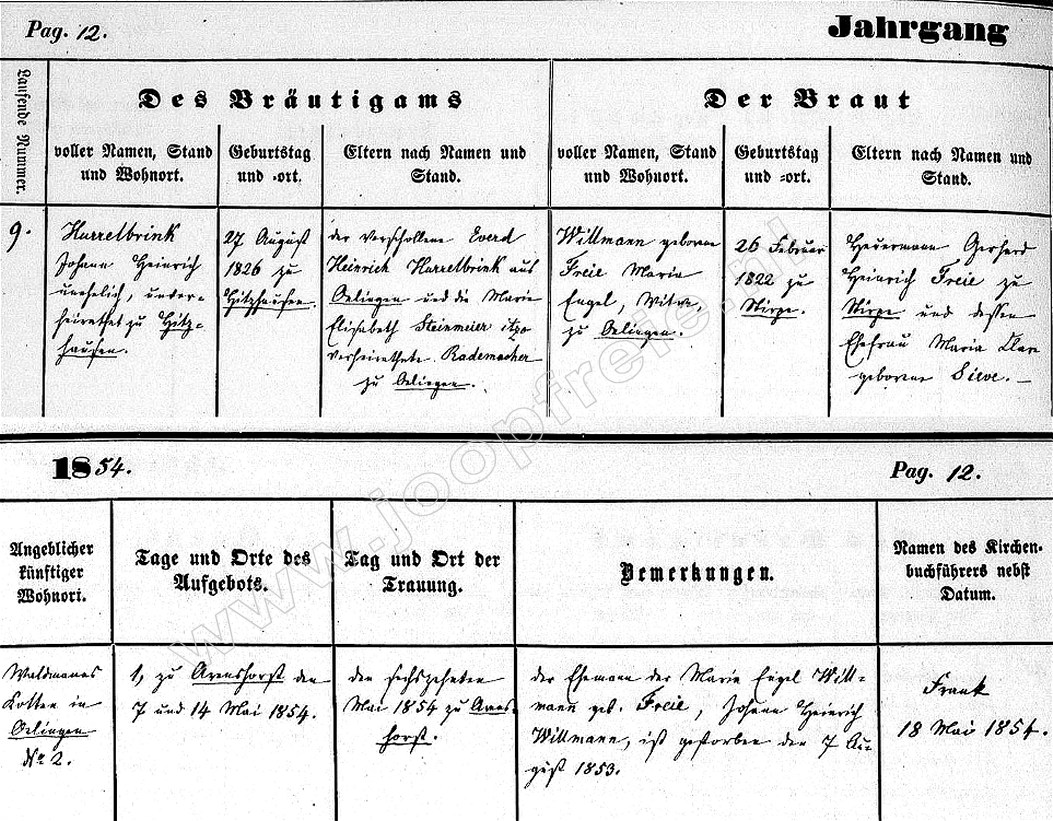 Pag. 12.
Jahrgang
Laufende Nummer.
Des Bräutigams
Der Braut
voller Namen, Stand
und Wohnort.
Geburtstag
und -ort.
Eltern nach Namen und
Stand.
voller Namen, Stand
und Wohnort.
Geburtstag
und -ort.
Eltern nach Namen und
Stand.
9.
Harrelbrink
Johann Heinrich
unehelich, unver-
heirathet zu Hitz-
hausen.
27 August
1826 zu
Hitzhausen.
der verschollene Everd
Heinrich Harrelbrink aus
Oelingen und die Marie
Elisabeth Steinmeier itzo
verheirathete Rademacher
zu Oelingen.
Willmann geborene
Freie Maria
Engel, Witwe,
zu Oelingen.
26 Februar
1822 zu
Stirpe.
Heuermann Gerherd
Heinrich Freie zu
Stirpe und dessen
Ehefrau Maria Clare
geborene Sieve. –
1854.
Pag. 12.
Angeblicher
künftiger
Wohnort.
Tage und Orte des
Aufgebots.
Tag und Ort der
Trauung.
Bemerkungen.
Namen des Kirchen-
buchführers nebst
Datum.
Waldmanns
Kotten in
Oelingen
No 2.
1, zu Arenshorst den
7 und 14 Mai 1854.
den sechszehnten
Mai 1854 zu Arens-
horst.
der Ehemann der Marie Engel Will-
mann geb. Freie, Johann Heinrich
Willmann, ist gestorben den 7 Au-
gust 1853.
Frank
18 Mai 1854.
www.joopfreie.nl